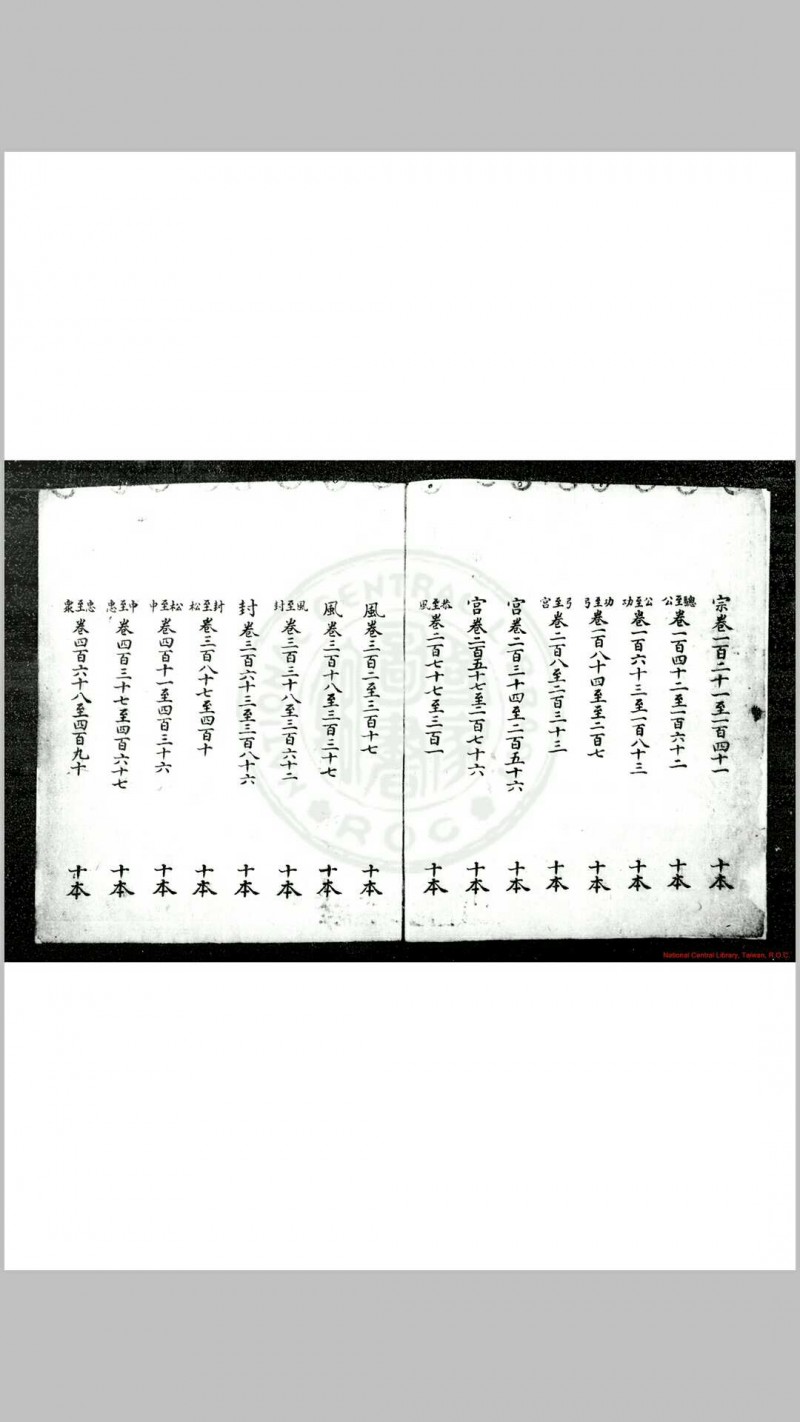 宗卷一百二十一至一百四十一 十本
總至公卷一百四十二至一百六十二 十本
公至功卷一百六十三至一百八十三 十本
功至弓卷一百八十四至二百七 十本
弓至宮卷二百八至二百三十三 十本
宮卷二百三十四至二百五十六 十本
宮卷二百五十七至二百七十六 十本
至風卷二百七十七至三百一 十本
風卷三百二至三百十七 十本
風卷三百十八至三百三十七 十本
風至封卷三百三十八至三百六十二 十本
封卷三百六十三至三百八十六 十本
封至松卷三百八十七至四百十 十本
松至中卷四百十一至四百三十六 十本
中至忠卷四百三十七至四百六十七 十本
忠至衆卷四百六十八至四百九十 十本
National Central Library, Taiwan, R.O.C.